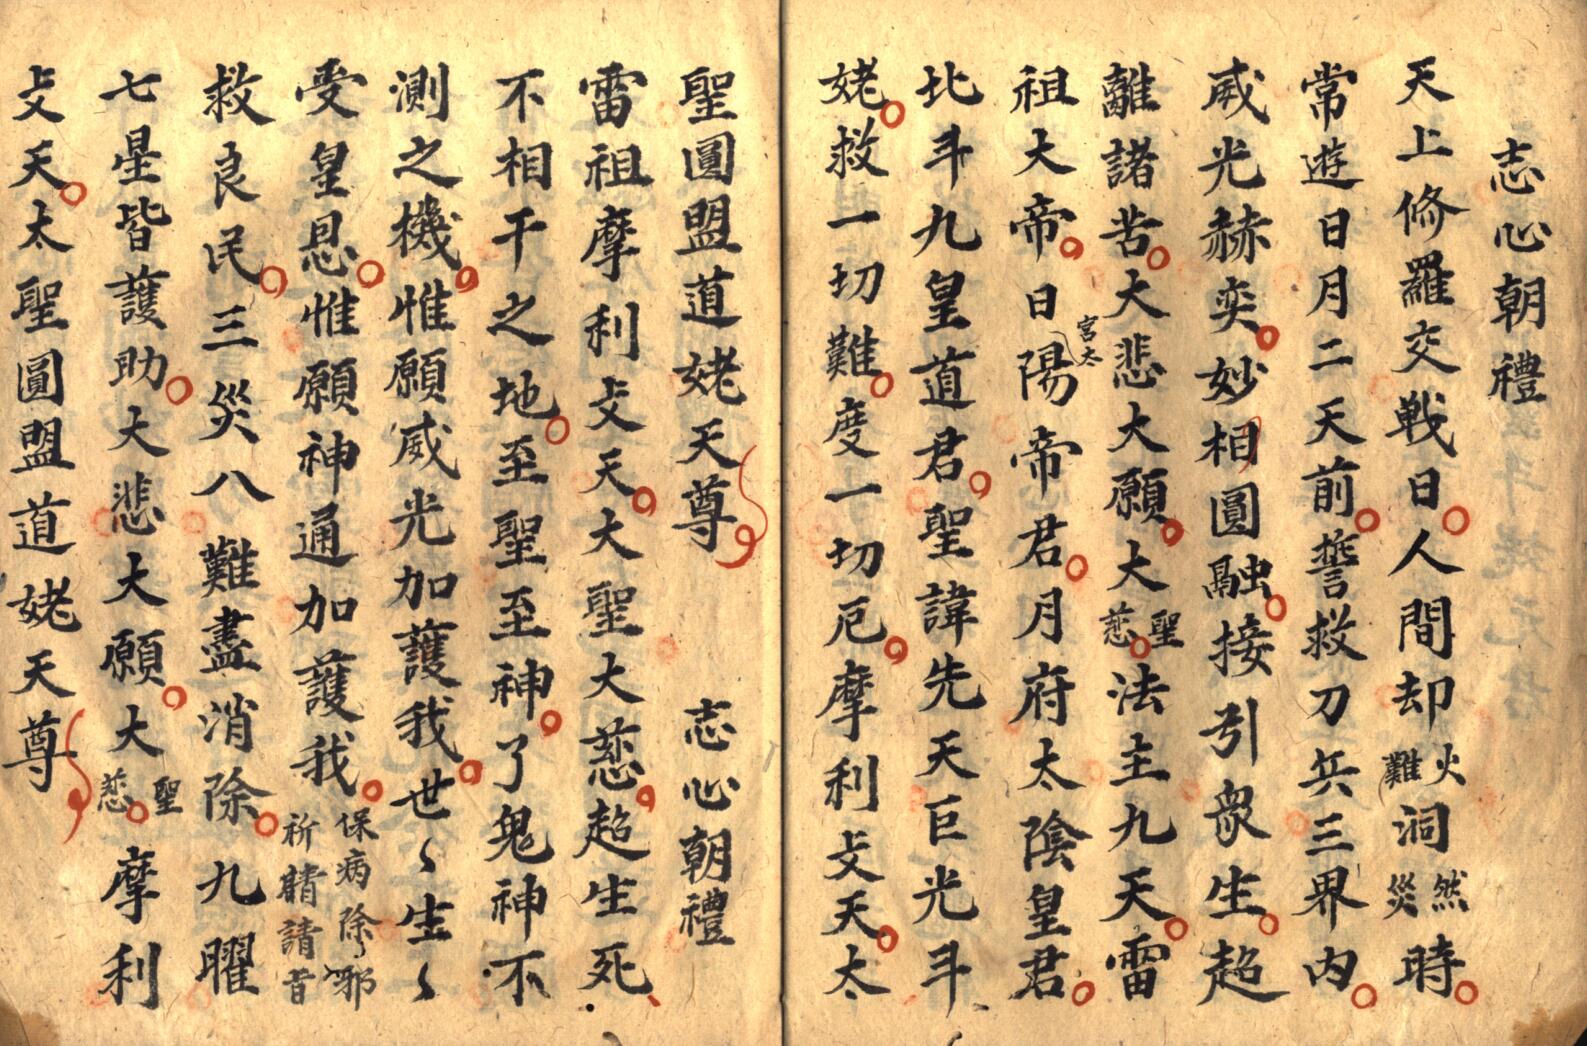 志心朝禮
天上修羅交戰日人間却火難洞然災時
常遊日月二天前誓救刀兵三界內
威光赫奕妙相圓融接引衆生超
離諸苦大悲大願大聖慈法主九天雷
祖大帝日宮太陽帝君月府太陰皇君
北斗九皇道君聖諱先天巨光斗
姥救一切難度一切厄摩利攴天太
聖圓盟道姥天尊 志心朝禮
雷祖摩利攴天大聖大慈超生死
不相干之地至聖至神了鬼神不
測之機惟願威光加護我世〻生〻
受皇恩惟願神通加護我保病除邪祈請昔
救良民三災八難盡消除九曜
七星皆護助大悲大願大聖慈摩利
攴天太聖圓盟道姥天尊